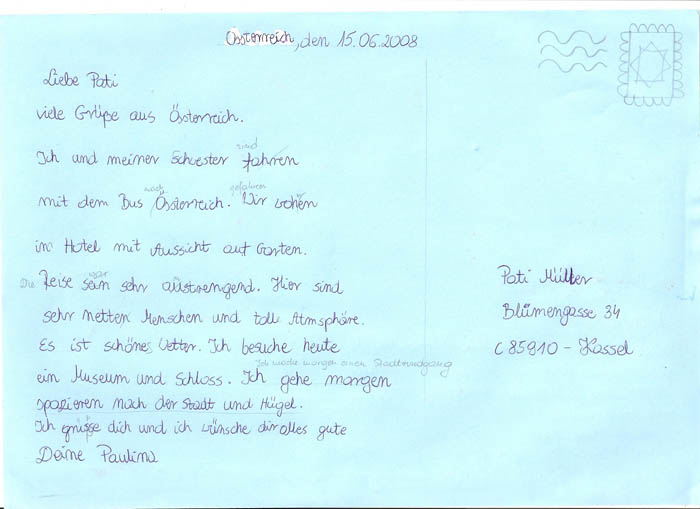 Össterreich, den 15.06.2008
Liebe Pati
viele Grüße aus Össterreich.
sind
Ich und meiner Schester fahren
nach gefahren
mit dem Bus Össterreich. Wir wohen
im Hotel mit Aussicht auf Garten.
Die war
Reise sein sehr austrengend. Hier sind
sehr netten Menschen und toll Atmsphäre.
Es ist schönes Wetter. Ich besuche heute
Ich mache morgen einen Stadtrundgang
ein Museum und Schloss. Ich gehe morgen
spazieren nach der Stadt und Hügel.
Ich grüsse dich und ich wünsche dir alles gute
Deine Paulina
Pati Müller
Blumengasse 34
C 85910 - Kassel